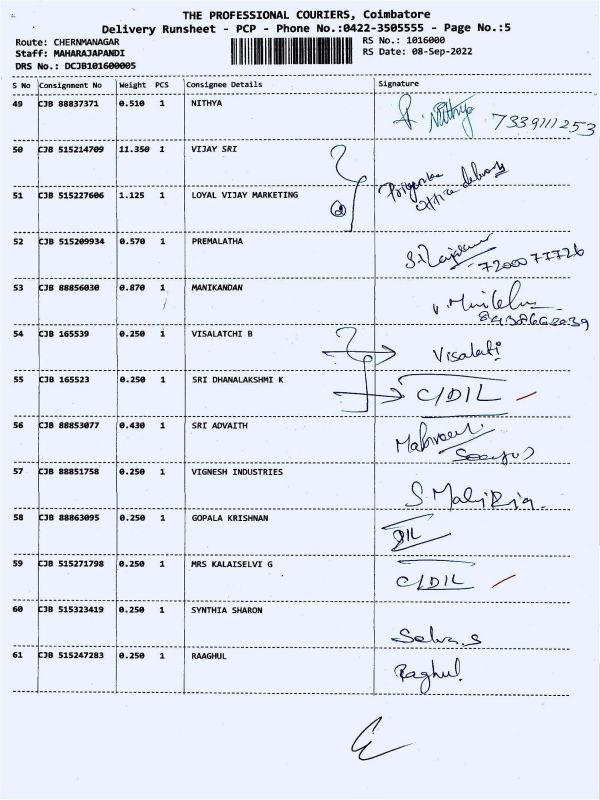 THE PROFESSIONAL COURIERS, Coimbatore
Delivery Runsheet - PCP - Phone No.:0422-3505555 - Page No.:5
Route: CHERNMANAGAR RS No.: 1016000
Staff: MAHARAJAPANDI RS Date: 08-Sep-2022
DRS No.: DCJB101600005
S No Consignment No Weight PCS Consignee Details Signature
49 CJB 88837371 0.510 1 NITHYA Nithya 7339111253
50 CJB 515214709 11.350 1 VIJAY SRI
51 CJB 515227606 1.125 1 LOYAL VIJAY MARKETING Priyanka
office delivery
52 CJB 515209934 0.570 1 PREMALATHA
7200077726
53 CJB 88856030 0.870 1 MANIKANDAN
54 CJB 165539 0.250 1 VISALATCHI B Visalati
55 CJB 165523 0.250 1 SRI DHANALAKSHMI K C/DIL
56 CJB 88853077 0.430 1 SRI ADVAITH
57 CJB 88851758 0.250 1 VIGNESH INDUSTRIES
58 CJB 88863095 0.250 1 GOPALA KRISHNAN DIL
59 CJB 515271798 0.250 1 MRS KALAISELVI G C/DIL
60 CJB 515323419 0.250 1 SYNTHIA SHARON Selva.s
61 CJB 515247283 0.250 1 RAAGHUL Raghul.